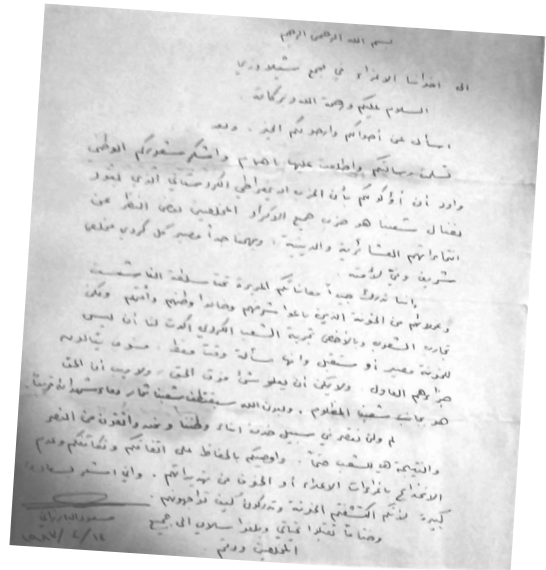 بسم الله الرحمن الرحيم
الى اخواننا الاعزاء في مجمع شيلادزي
السلام عليكم ورحمة الله وبركاته .
اسأل عن أحوالكم وارجو لكم الخير . وبعد
تسلمت رسالتكم واطلعت عليها باهتمام واشكر شعوركم الوطني
واود أن أؤكد لكم بأن الحزب الديمقراطي الكردستاني الذي يقود
نضال شعبنا هو حزب جميع الاكراد المخلصين بغض النظر عن
انتماءاتهم العشائرية والدينية . ويهمنا جداً مصير كل كردي مخلص
شريف وفيّ لأمته
واننا ندرك جيداً معاناتكم المريرة تحت سلطة
من الخونة الذين باعوا شرفهم وخانوا وطنهم وأمتهم . ولكن
تجارب الشعوب وبالأخص تجربة الشعب الكردي أكدت لنا أن ليس
للخونة مصير أو مستقبل وانها مسألة وقت فقط . فسوف ينالون
جزاءهم العادل . ولا يمكن أن يعلو شيئاً فوق الحق ، ولا ريب أن الحق
هو بجانب شعبنا المظلوم . وبعون الله سيقتطف شعبنا ثمار دماء شهدائه قريباً .
ولن نقصر في سبيل خدمة ابناء وطننا ونحن واثقون من النصر
والنتيجة هي للشعب حتماً . واوصيكم بالحفاظ على اتفاقكم وتكاتفكم وعدم
الانخداع الاعداء أو الخوف من تهديداتهم . واني
كبيرة لأنكم اكتشفتم الخونة وتدركون كيف تواجهونهم .
وختاماً تقبلوا تحياتي وبلغوا سلامي الى جميع
المخلصين ودمتم
مسعود البارزاني